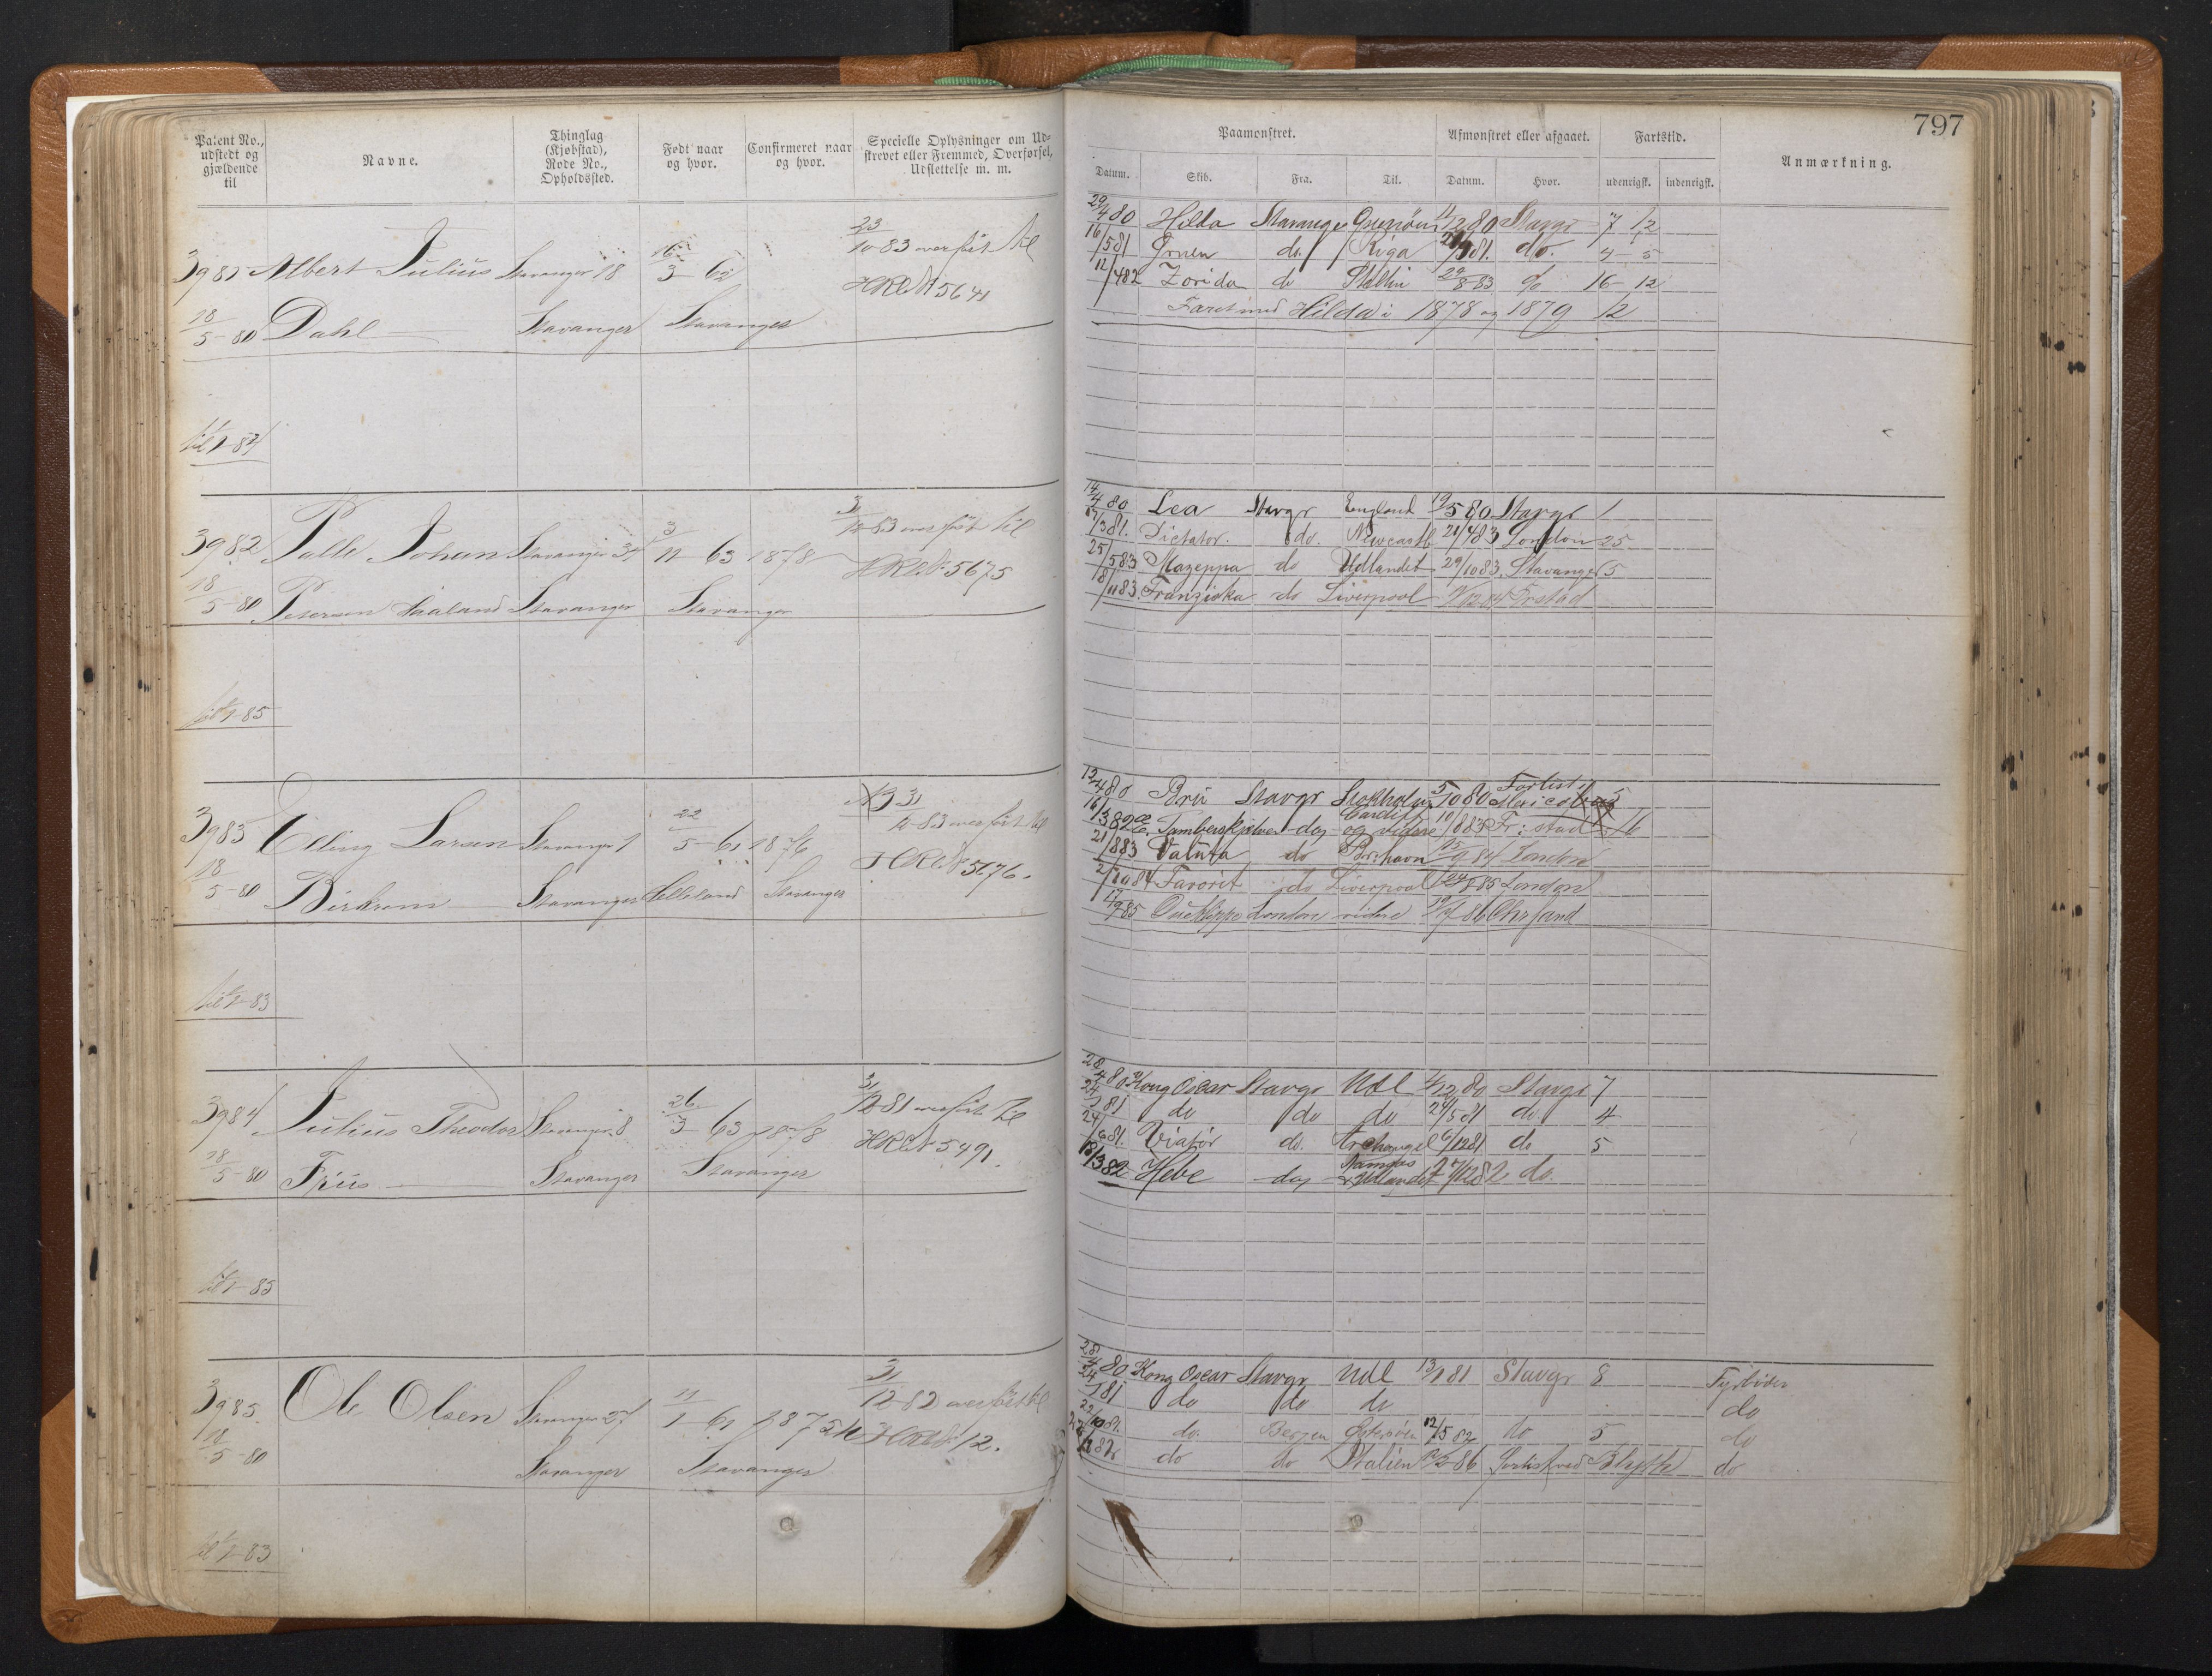 797
Patent No., udstedt og gjældende til
Navne.
Thinglag (Kjøbstad), Rode No., Opholdssted.
Født naar og hvor.
Confirmeret naar og hvor.
Specielle Oplysninger om Udskrevet eller Fremmed, Overførsel, Udslettelse m. m.
Paamønstret.
Afmønstret eller afgaaet.
Fartstid.
Anmærkning.
Datum. Skib. Fra. Til. Datum. Hvor. udenrigsk. indenrigsk.
3981 Albert Julius Stavanger 18 16/3-62 23/10-83 overført til
HRN 5641
18/5-80 Dahl Stavanger Stavanger
til 1/1-84
29/4 80 Hilda Stavanger 80 Stavgr 7 12
16/5 81 do. Riga 81. do. 4-5
12/4 82 Zorida do Stettin 29/8-83 16-12
Faret med Hilda i 1878 og 1879 12
3982 Palle Johan Stavanger 3/11-63 1878 overført til
HRN 5675
18/5-80 Petersen Haaland Stavanger Stavanger
til 1/1-85
14/4 80 Lea Stavgr England 19/5 80 Stavgr 1
81. Dictator. do. Newcastle 21/4 83 London 25
25/5 83 Mazeppa do Udlandet 29/10 83. Stavanger 5
18/11 83. Franziska do Liverpool Frstad
3983 Elling Larsen Stavanger 1 22/5-61 1876 31/12-83 overført til
HRN 5676.
18/5-80 Birkrem Stavanger Helleland Stavanger
til 1/1-83
80 Bri Stavgr Stockholm 5/10 80 Forlist 5
16/3 82 Tamberskjelver dog Cardiff og videre 83 Fr:stad 16
21/8 83 Valuta do 84 London
2/10 84 Favorit do Liverpool 85 London
85 London videre 86 Chrsand
3984 Julius Theodor Stavanger 8 26/3-63 1878 31/12 81 overført til
HRN 5491.
18/5-80 Friis Stavanger Stavanger
til 1/1-85
28/4 80 Kong Oscar Stavgr Udl 80 Stavgr 7
24/1 81 do do do 24/5 81 do. 4
24/6 81. Viatör do. Archangel 6/12 81 do 5
18/3 82 Hebe dog Udlandet do.
3985. Ole Olsen Stavanger 27 11/1-61 1875 31/12-82 overført til
HRN 12.
18/5-80 Stavanger Stavanger
til 1/1-83
28/4 80 Kong Oscar Stavgr Udl 13/1 81 Stavgr 8 Fyrbøder
24/1 81 do do do do
22/10 81. do. Bergen Østersøen 12/5 82 do 5 do
82 do do Italien 86 Forlist ved Blyth do